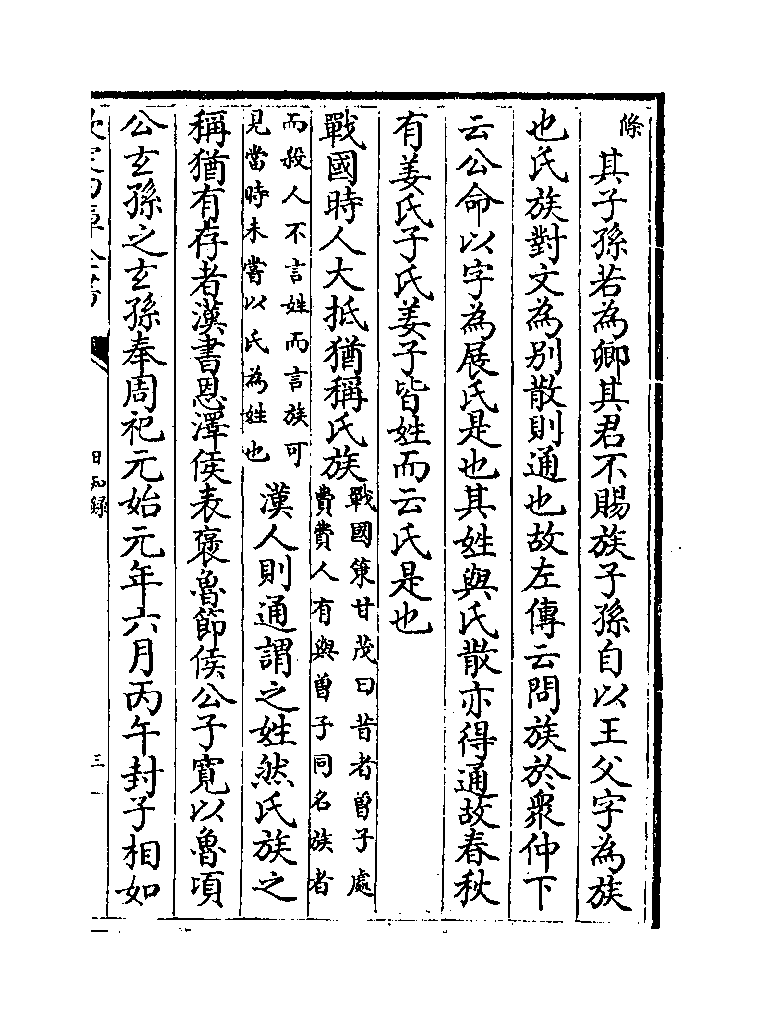 條其子孫若為卿其君不賜族子孫自以王父字為族
也氏族對文為別散則通也故左傳云問族於衆仲下
云公命以字為展氏是也其姓與氏散亦得通故春秋
有姜氏子氏姜子皆姓而云氏是也
戰國時人大抵猶稱氏族戰國策甘茂曰昔者曾子處
費費人有與曾子同名族者
而殺人不言姓而言族可
見當時未嘗以氏為姓也漢人則通謂之姓然氏族之
稱猶有存者漢書恩澤侯表褒魯節侯公子寬以魯頃
公玄孫之玄孫奉周祀元始元年六月丙午封子相如
日知錄
三